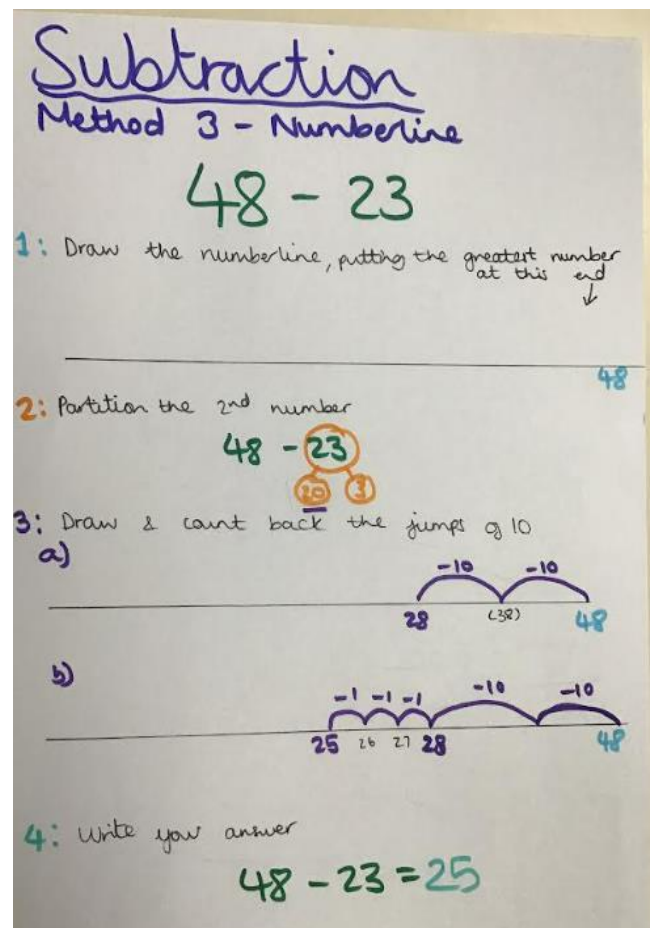 Subtraction
Method 3 - Numberline
48 - 23
1: Draw the numberline, putting the greatest number
at this end
48
2: Partition the 2nd number
48 - 23
20 3
3: Draw & count back the jumps of 10
a)
-10 -10
28 (38) 48
b)
-1 -1 -1 -10 -10
25 26 27 28 48
4: Write your answer
48 - 23 = 25